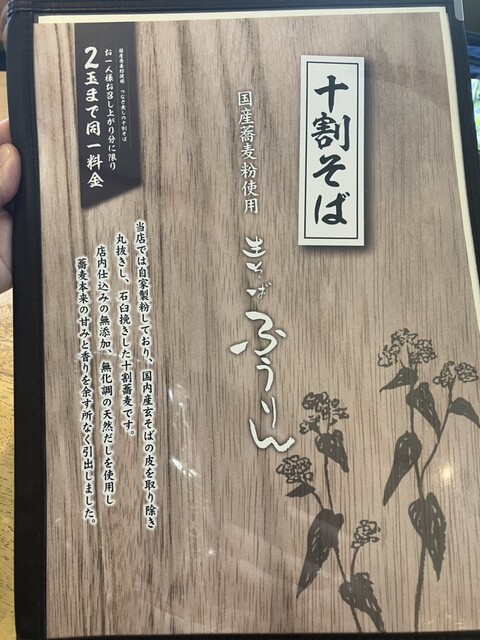 十割そば
国産蕎麦粉使用
生そば ふうりん
当店では自家製粉しており、国内産玄そばの皮を取り除き
丸抜きし、石臼挽きした十割蕎麦です。
店内仕込みの無添加、無化調の天然だしを使用し
蕎麦本来の甘みと香りを余す所なく引出しました。
国産蕎麦粉使用 つなぎ無しの十割そば
お一人様お召し上がり分に限り
2玉まで同一料金